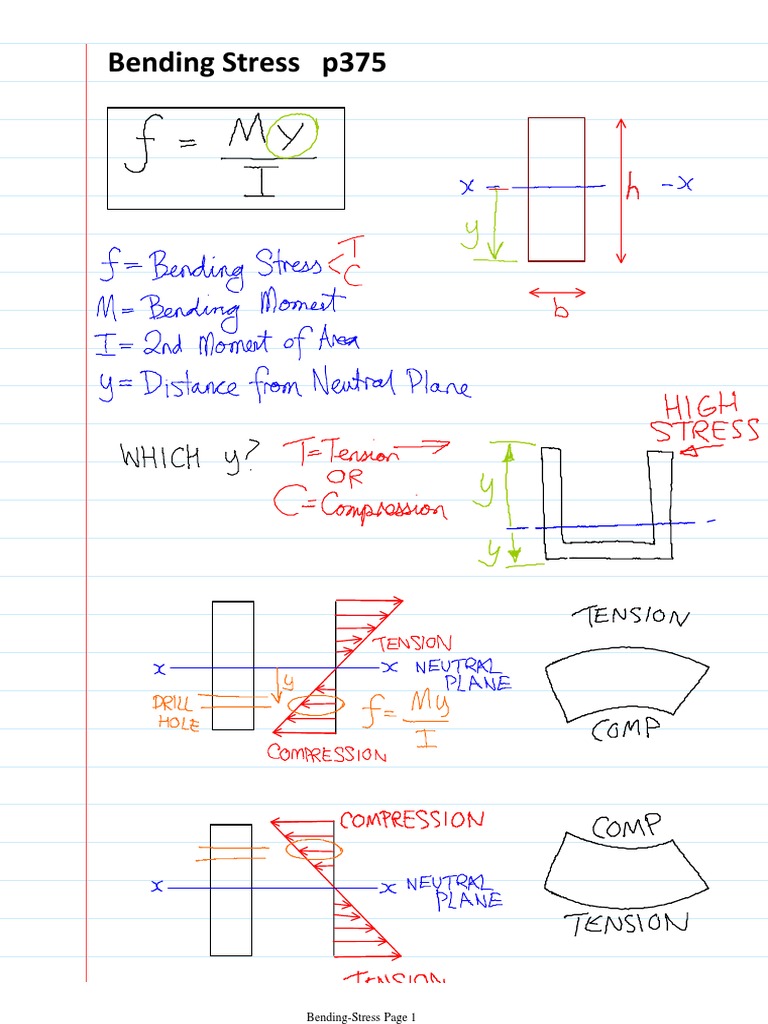 Bending Stress p375
f = My
I
x - x
h
y
b
f = Bending Stress < T
C
M = Bending Moment
I = 2nd Moment of Area
y = Distance from Neutral Plane
HIGH
STRESS
WHICH y? T = Tension
OR
C = Compression
y
y
TENSION
TENSION
x x NEUTRAL
PLANE
y
DRILL
HOLE
f = My
I
COMP
COMPRESSION
COMPRESSION
COMP
x x NEUTRAL
PLANE
TENSION
TENSION
Bending-Stress Page 1